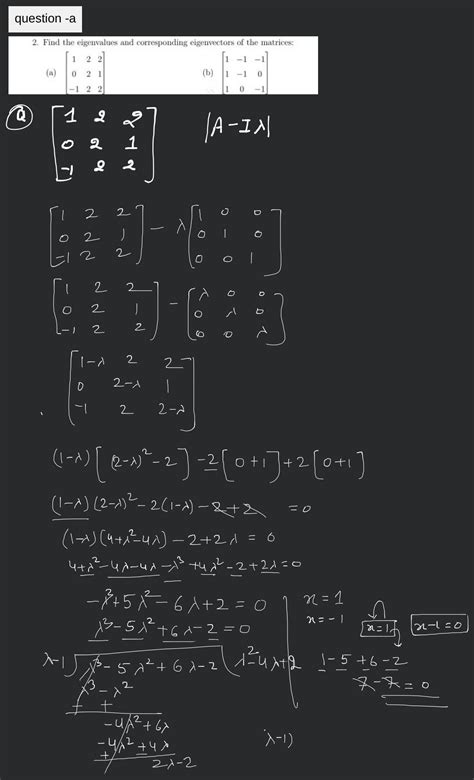 question -a
2. Find the eigenvalues and corresponding eigenvectors of the matrices:
(a) [1 2 2
0 2 1
-1 2 2]
(b) [1 -1 -1
1 -1 0
1 0 -1]
Q [1 2 2
0 2 1
-1 2 2] |A-Iλ|
[1 2 2
0 2 1
-1 2 2] - λ [1 0 0
0 1 0
0 0 1]
[1 2 2
0 2 1
-1 2 2] - [λ 0 0
0 λ 0
0 0 λ]
[1-λ 2 2
0 2-λ 1
-1 2 2-λ]
(1-λ)[(2-λ)²-2]-2[0+1]+2[0+1]
(1-λ)(2-λ)²-2(1-λ)-2+2 =0
(1-λ)(4+λ²-4λ)-2+2λ = 0
4+λ²-4λ-4λ-λ³+4λ²-2+2λ=0
-λ³+5λ²-6λ+2=0
λ³-5λ²+6λ-2=0
x=1
x=-1
x=1
x-1=0
1-5+6-2
7-7=0
λ-1) λ³-5λ²+6λ-2 (λ²-4λ+2
λ³-λ²
- +
-4λ²+6λ
-4λ²+4λ
+
2λ-2
λ-1)